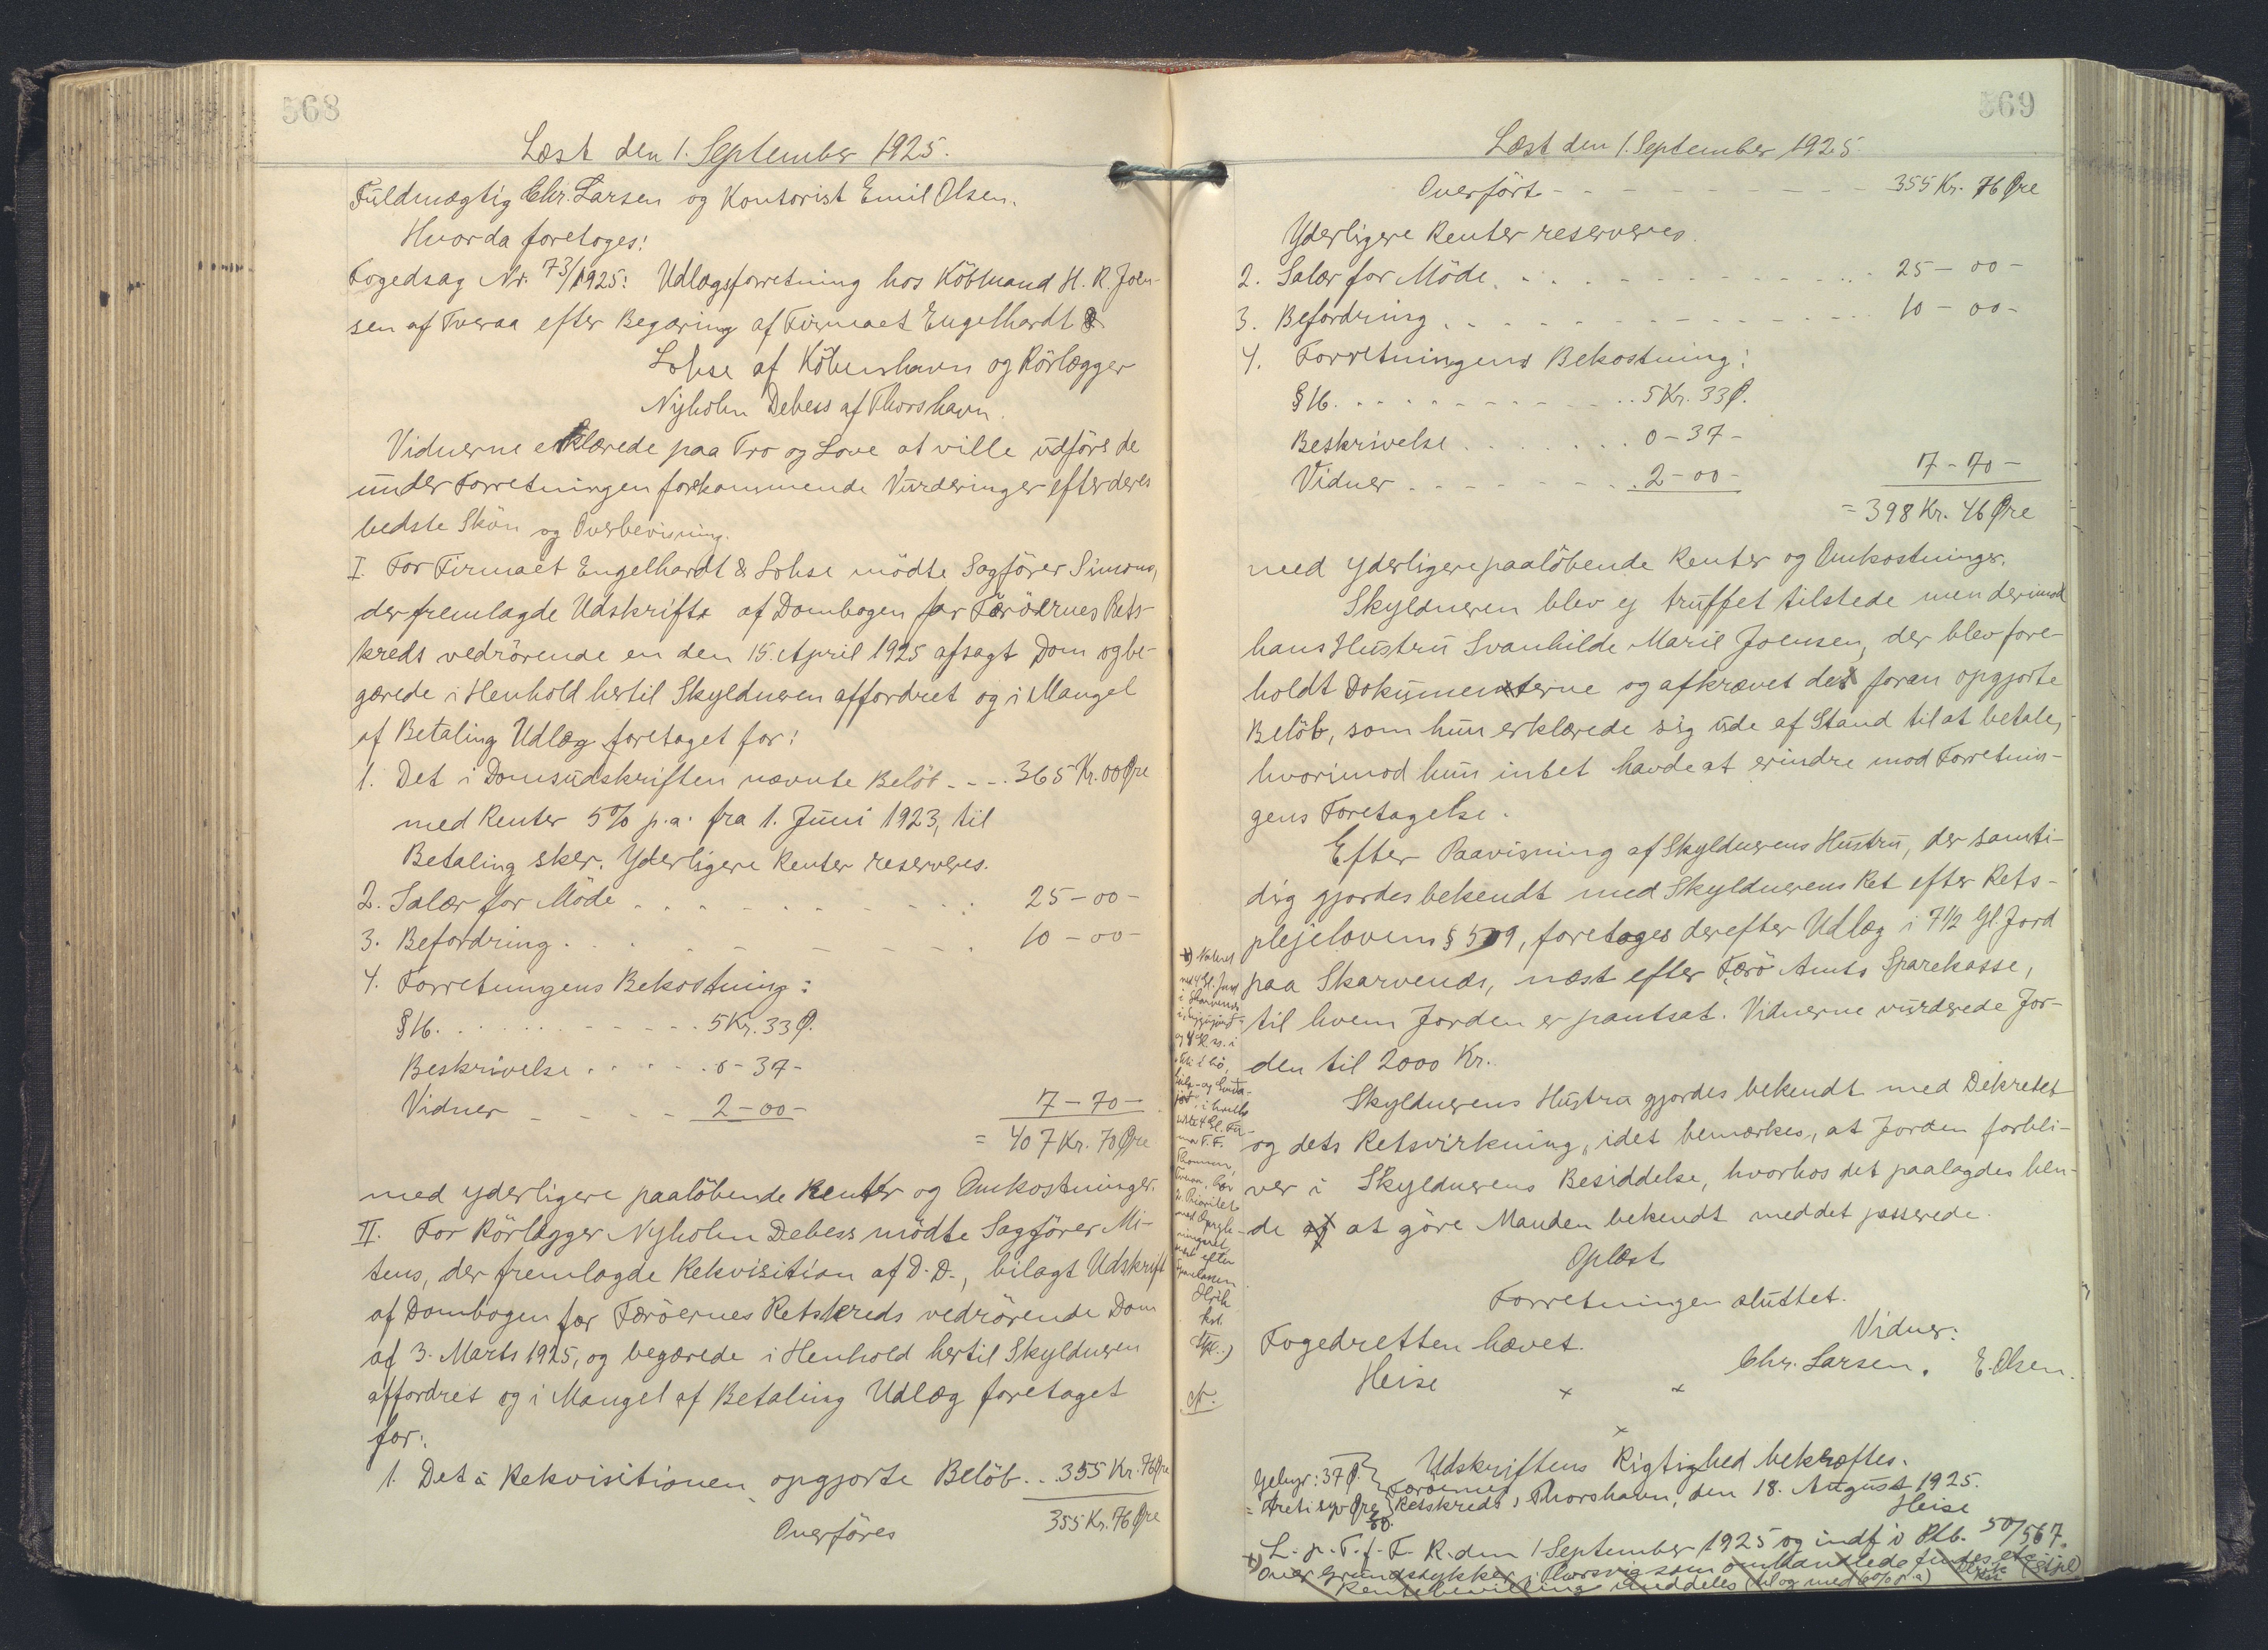 568
Læst den 1. September 1925.
Fuldmægtig Chr. Larsen og Kontorist Emil Olsen.
Hvorda foretoges:
Fogedsag Nr. 73/1925: Udlægsforretning hos Köbmand H. R. Joen-
sen af Tveraa efter Begæring af Firmaet Engelhardt &
Lohse af Köbenhavn og Rörlægger
Nyholm Debess af Thorshavn.
Vidnerne erklærede paa Tro og Love at ville udföre de
under Forretningen forekommende Vurderinger efter deres
bedste Skön og Overbevisning.
I. For Firmaet Engelhardt & Lohse mödte Sagförer Simons,
der fremlagde Udskrift af Dombogen for Færöernes Rets-
kreds vedrörende en den 15. April 1925 afsagt Dom og be-
gærede i Henhold hertil Skyldneren affordret og i Mangel
af Betaling Udlæg foretaget for:
1. Det i Domsudskriften nævnte Belöb - - - 365 Kr. 00 Øre
med Renter 5% p.a. fra 1. Juni 1923, til
Betaling sker. Yderligere Renter reserveres.
2. Salær for Möde . . . . . . . . . 25 - 00 -
3. Befordring . . . . . . . . . 10 - 00 -
4. Forretningens Bekostning:
§ 16. . . . . . . . . 5 Kr. 33 Ø.
Beskrivelse . . . . . . 0 - 37 -
Vidner - - - - - 2 - 00 - 7 - 70 -
= 407 Kr. 70 Øre
med yderligere paalöbende Renter og Omkostninger.
II. For Rörlægger Nyholm Debess mödte Sagförer Mi-
tens, der fremlagde Rekvisition af D. D., bilagt Udskrift
af Dombogen for Færöernes Retskreds vedrörende Dom
af 3. Marts 1925, og begærede i Henhold hertil Skyldneren
affordret og i Mangel af Betaling Udlæg foretaget
for:
1. Det i Rekvisitionen opgjorte Belöb . . 355 Kr. 76 Øre
Overföres 355 Kr. 76 Øre
569
Læst den 1. September 1925.
Overfört - - - - - - - - - - - 355 Kr. 76 Øre
Yderligere Renter reserveres.
2. Salær for Möde . . . . . . . . . 25 - 00 -
3. Befordring . . . . . . . . . 10 - 00 -
4. Forretningens Bekostning:
§ 16. . . . . . . . . 5 Kr. 33 Ø.
Beskrivelse . . . . . . 0 - 37 -
Vidner . . . . . . . 2 - 00 - 7 - 70 -
= 398 Kr. 46 Øre
med yderligere paalöbende Renter og Omkostninger.
Skyldneren blev ej truffet tilstede men derimod
hans Hustru Svanhilde Marie Joensen, der blev fore-
holdt Dokumenterne og afkrævet det foran opgjorte
Belöb, som hun erklærede sig ude af Stand til at betale,
hvorimod hun intet havde at erindre mod Forretnin-
gens Foretagelse.
Efter Paavisning af Skyldnerens Hustru, der samti-
dig gjordes bekendt med Skyldnerens Ret efter Rets-
plejelovens § 509, foretoges derefter Udlæg i 7 1/2 Gl. Jord
paa Skarvenæs, næst efter Færö Amts Sparekasse,
til hvem Jorden er pantsat. Vidnerne vurderede Jor-
den til 2000 Kr.
Skyldnerens Hustru gjordes bekendt med Dekretet
og dets Retsvirkning, idet bemærkes, at Jorden forbli-
ver i Skyldnerens Besiddelse, hvorhos det paalagdes hen-
de at göre Manden bekendt med det passerede.
Oplæst
Forretningen sluttet.
Fogedretten hævet. Vidner:
Heise Chr. Larsen. E. Olsen.
Udskriftens Rigtighed bekræftes.
Gebyr: 37 Ø. Færöernes
= Treti syv Øre Retskreds, Thorshavn, den 18. August 1925.
Heise
L. p. T. f. F. R. den 1 September 1925 og indf. i Ptb. 50/567.
over Grundstykker i som omhandlede findes
meddeles (til og med 6% p. a)